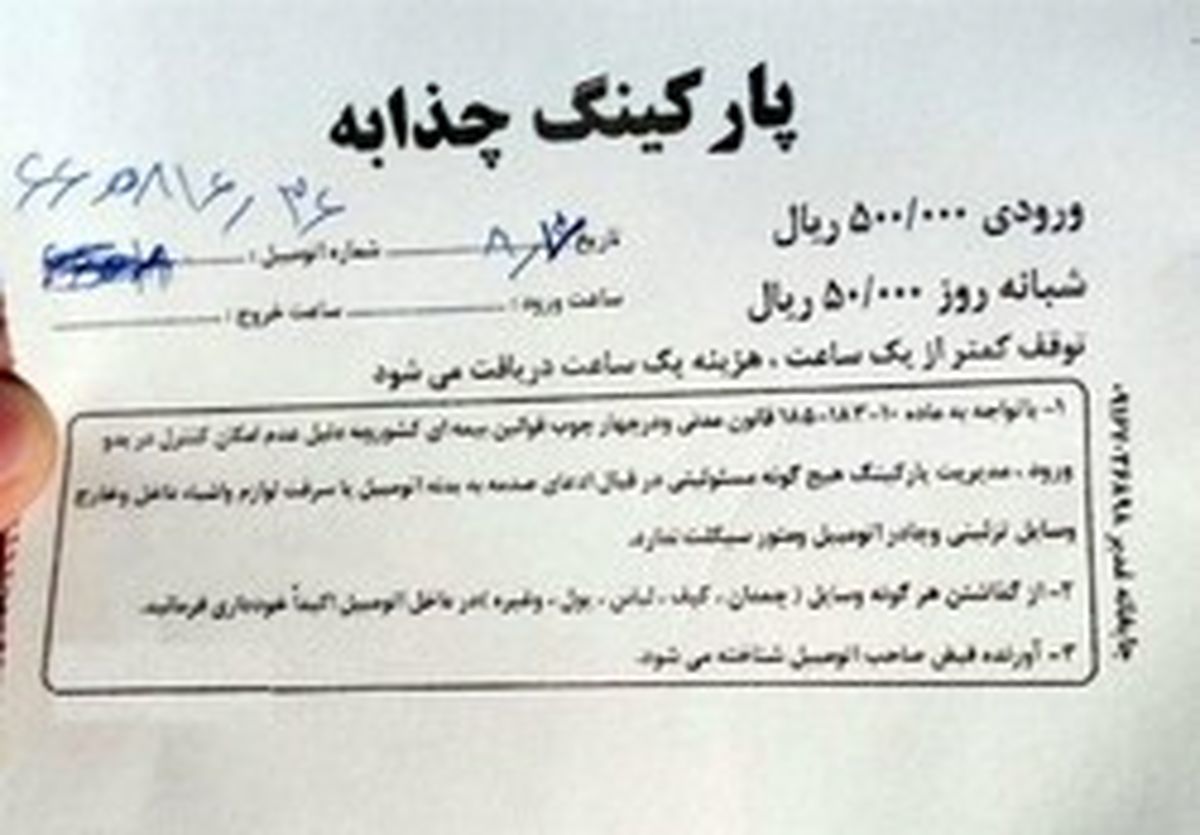 پارکینگ چذابه
ورودی ۵۰۰/۰۰۰ ریال
شبانه روز ۵۰/۰۰۰ ریال
تاریخ شماره اتومبیل :
ساعت ورود : ساعت خروج :
توقف کمتر از یک ساعت ، هزینه یک ساعت دریافت می شود
۱- باتوجه به ماده ۱۰-۱۸۳-۱۸۵ قانون مدنی ودرچهار چوب قوانین بیمه ای کشوروبه دلیل عدم امکان کنترل در بدو
ورود ، مدیریت پارکینگ هیچ گونه مسئولیتی در قبال ادعای صدمه به بدنه اتومبیل یا سرقت لوازم واشیاء داخل وخارج
وسایل تزئینی وچادر اتومبیل وموتور سیکلت ندارد.
۲- از گذاشتن هر گونه وسایل ( چمدان ، کیف ، لباس ، پول ، وغیره )در داخل اتومبیل اکیداً خودداری فرمائید.
۳- آورنده قبض صاحب اتومبیل شناخته می شود.
چاپخانه